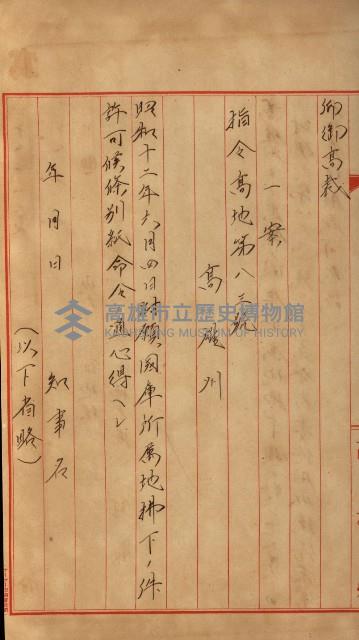 仰御高裁
一案
指令高地第八三號
高雄州
昭和十二年六月四日附願國庫所屬地拂下ノ件
許可候條別紙命令通心得ヘシ
年月日
知事名
(以下省略)
高雄市立歷史博物館
KAOHSIUNG MUSEUM OF HISTORY